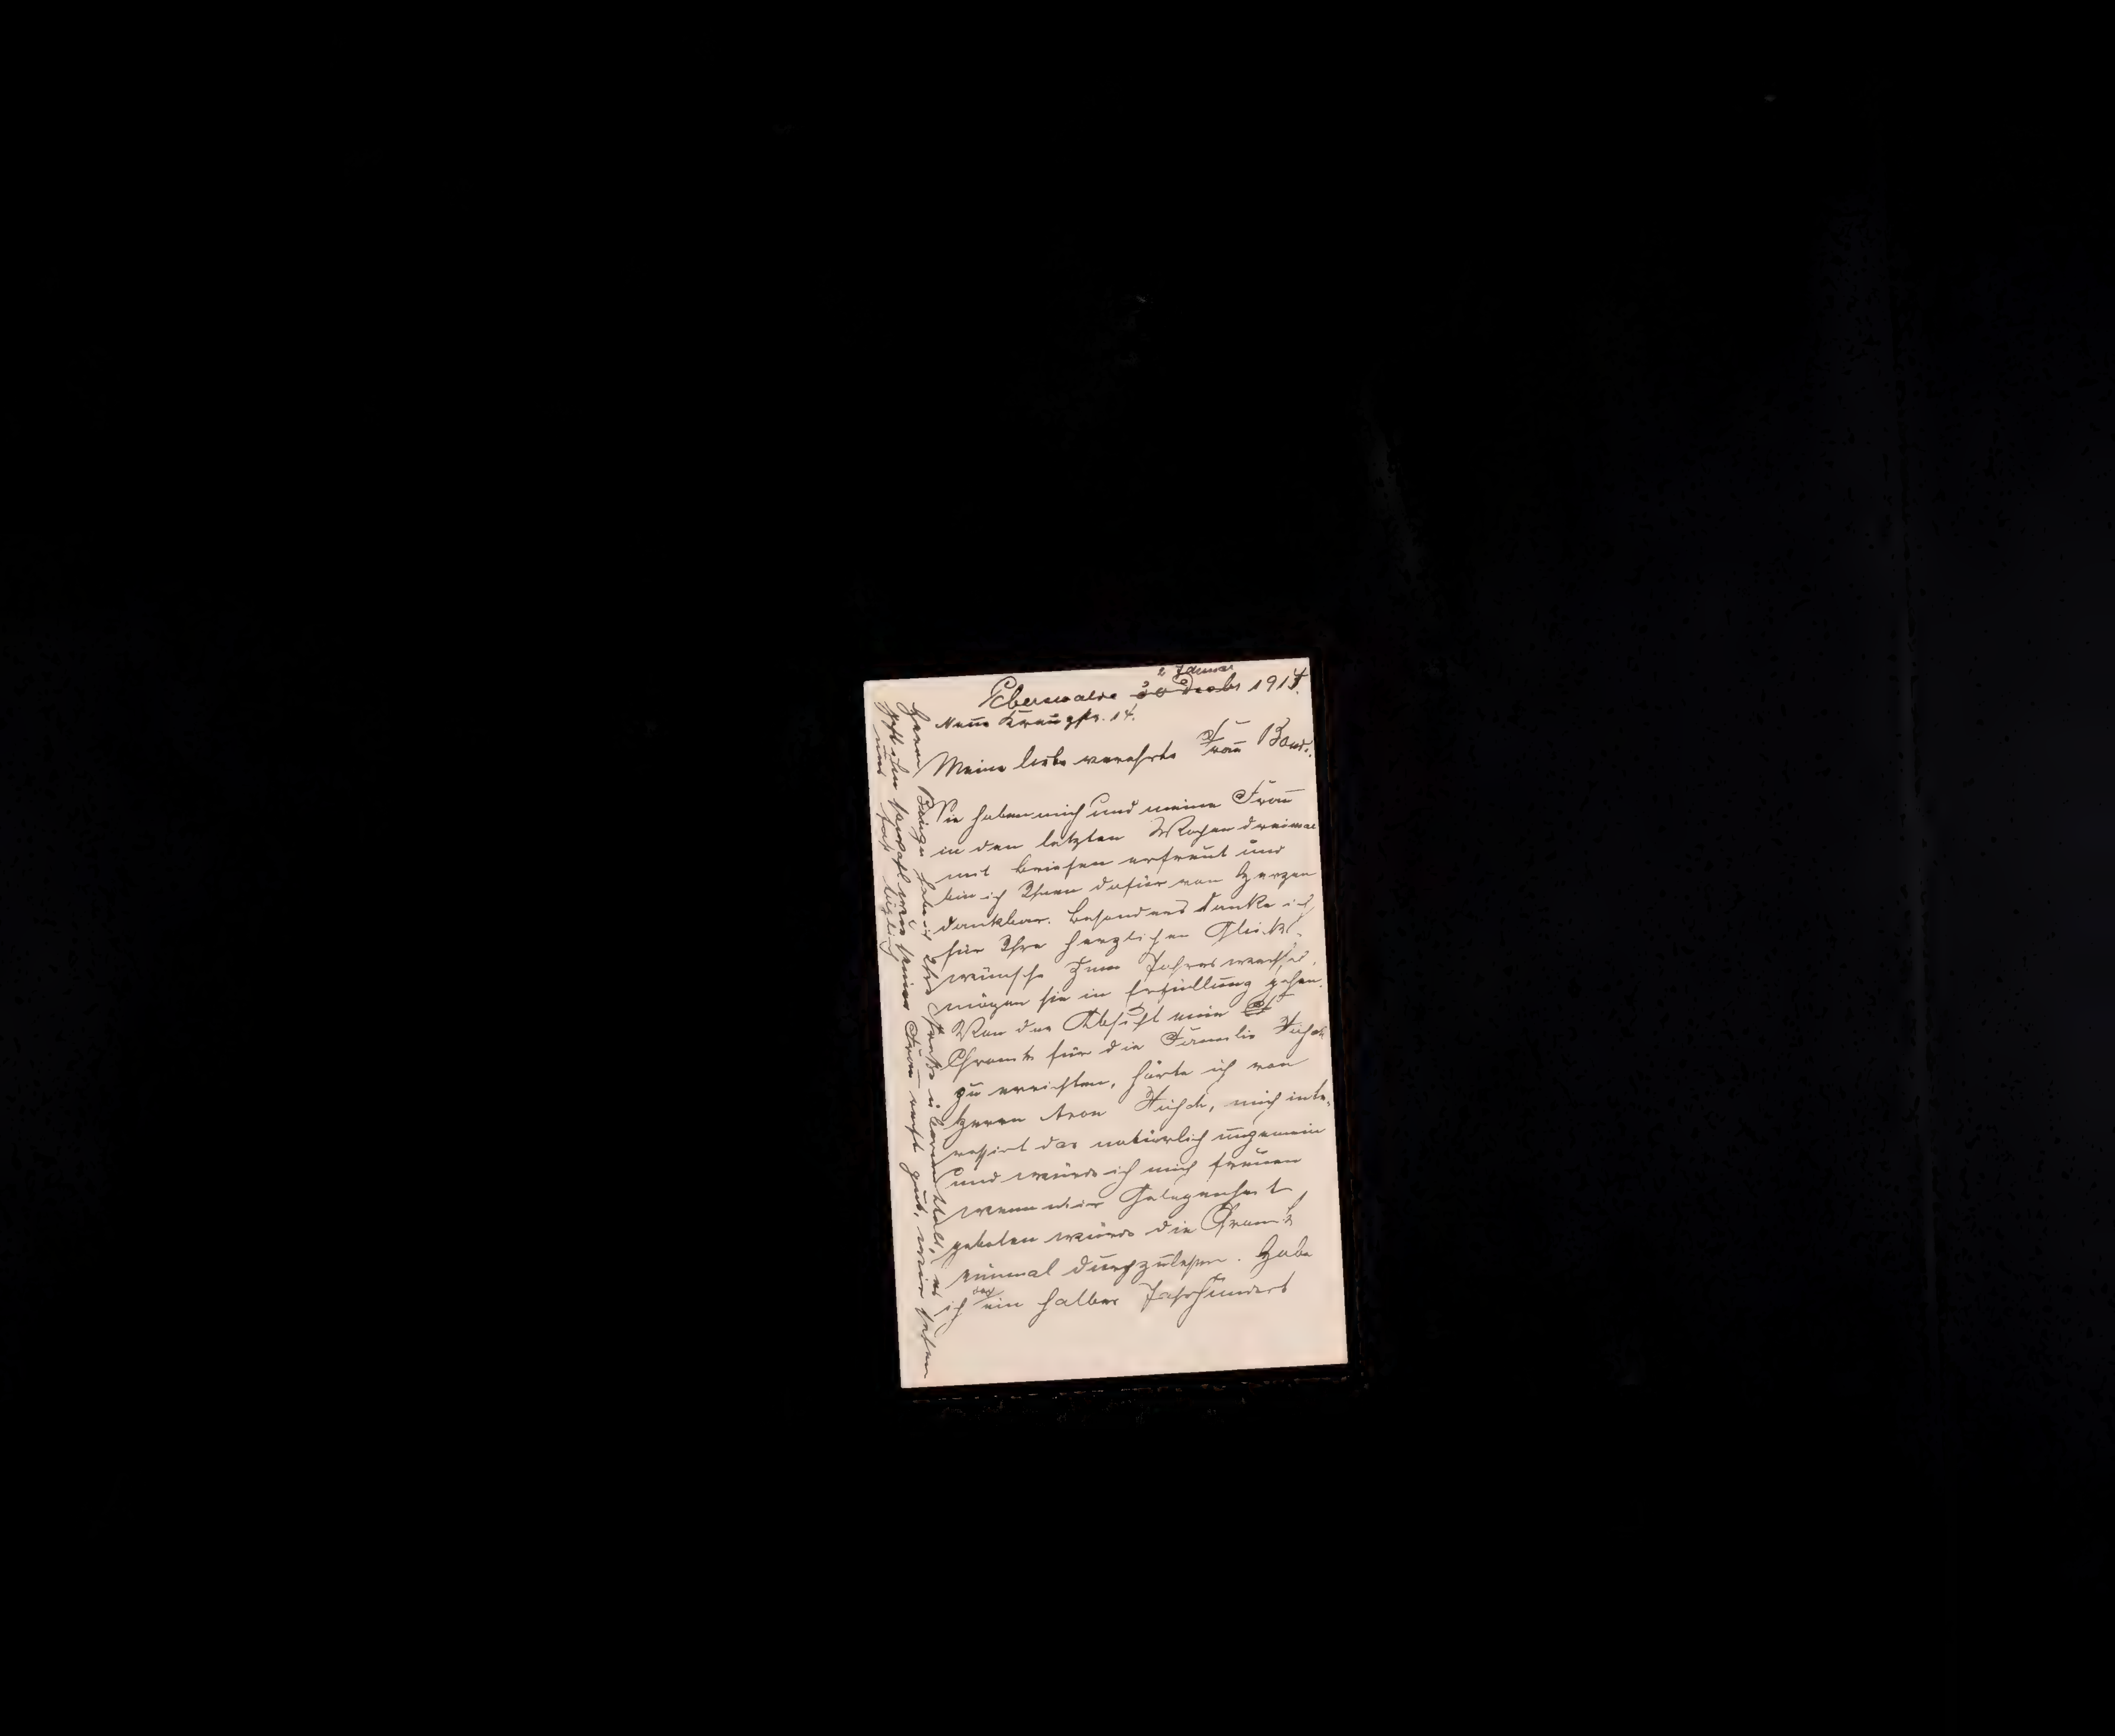 2 Januar
Eberswalde 30 Decbr 1914.
Neue Kreuzstr. 14.
Meine liebe verehrte Frau
Sie haben mich und meine Frau
in den letzten Wochen dreimal
mit Briefen erfreut und
bin ich Ihnen dafür von Herzen
dankbar. Besonders danke ich
für Ihre herzlichen Glück-
wünsche zum Jahreswechsel,
mögen sie in Erfüllung gehen.
Von der Absicht eine
Chronik für die Familie Hirsch
zu errichten, hörte ich von
Herrn Aron Hirsch, mich inte-
ressirt das natürlich ungemein
und würde ich mich freuen
wenn mir Gelegenheit
geboten würde die Chronik
einmal durchzulesen. Habe
ich doch ein halbes Jahrhundert
Herrn habe ich Ihre Grüße es
geht ihm sowohl wie seiner Frau recht gut, wir sehen
uns fast täglich